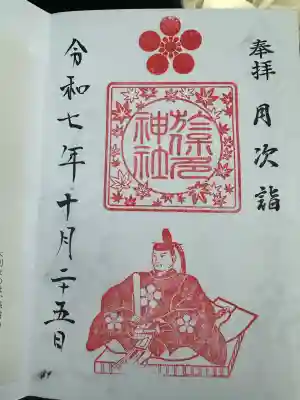 奉拝 月次詣
神社
令和七年十月二十五日